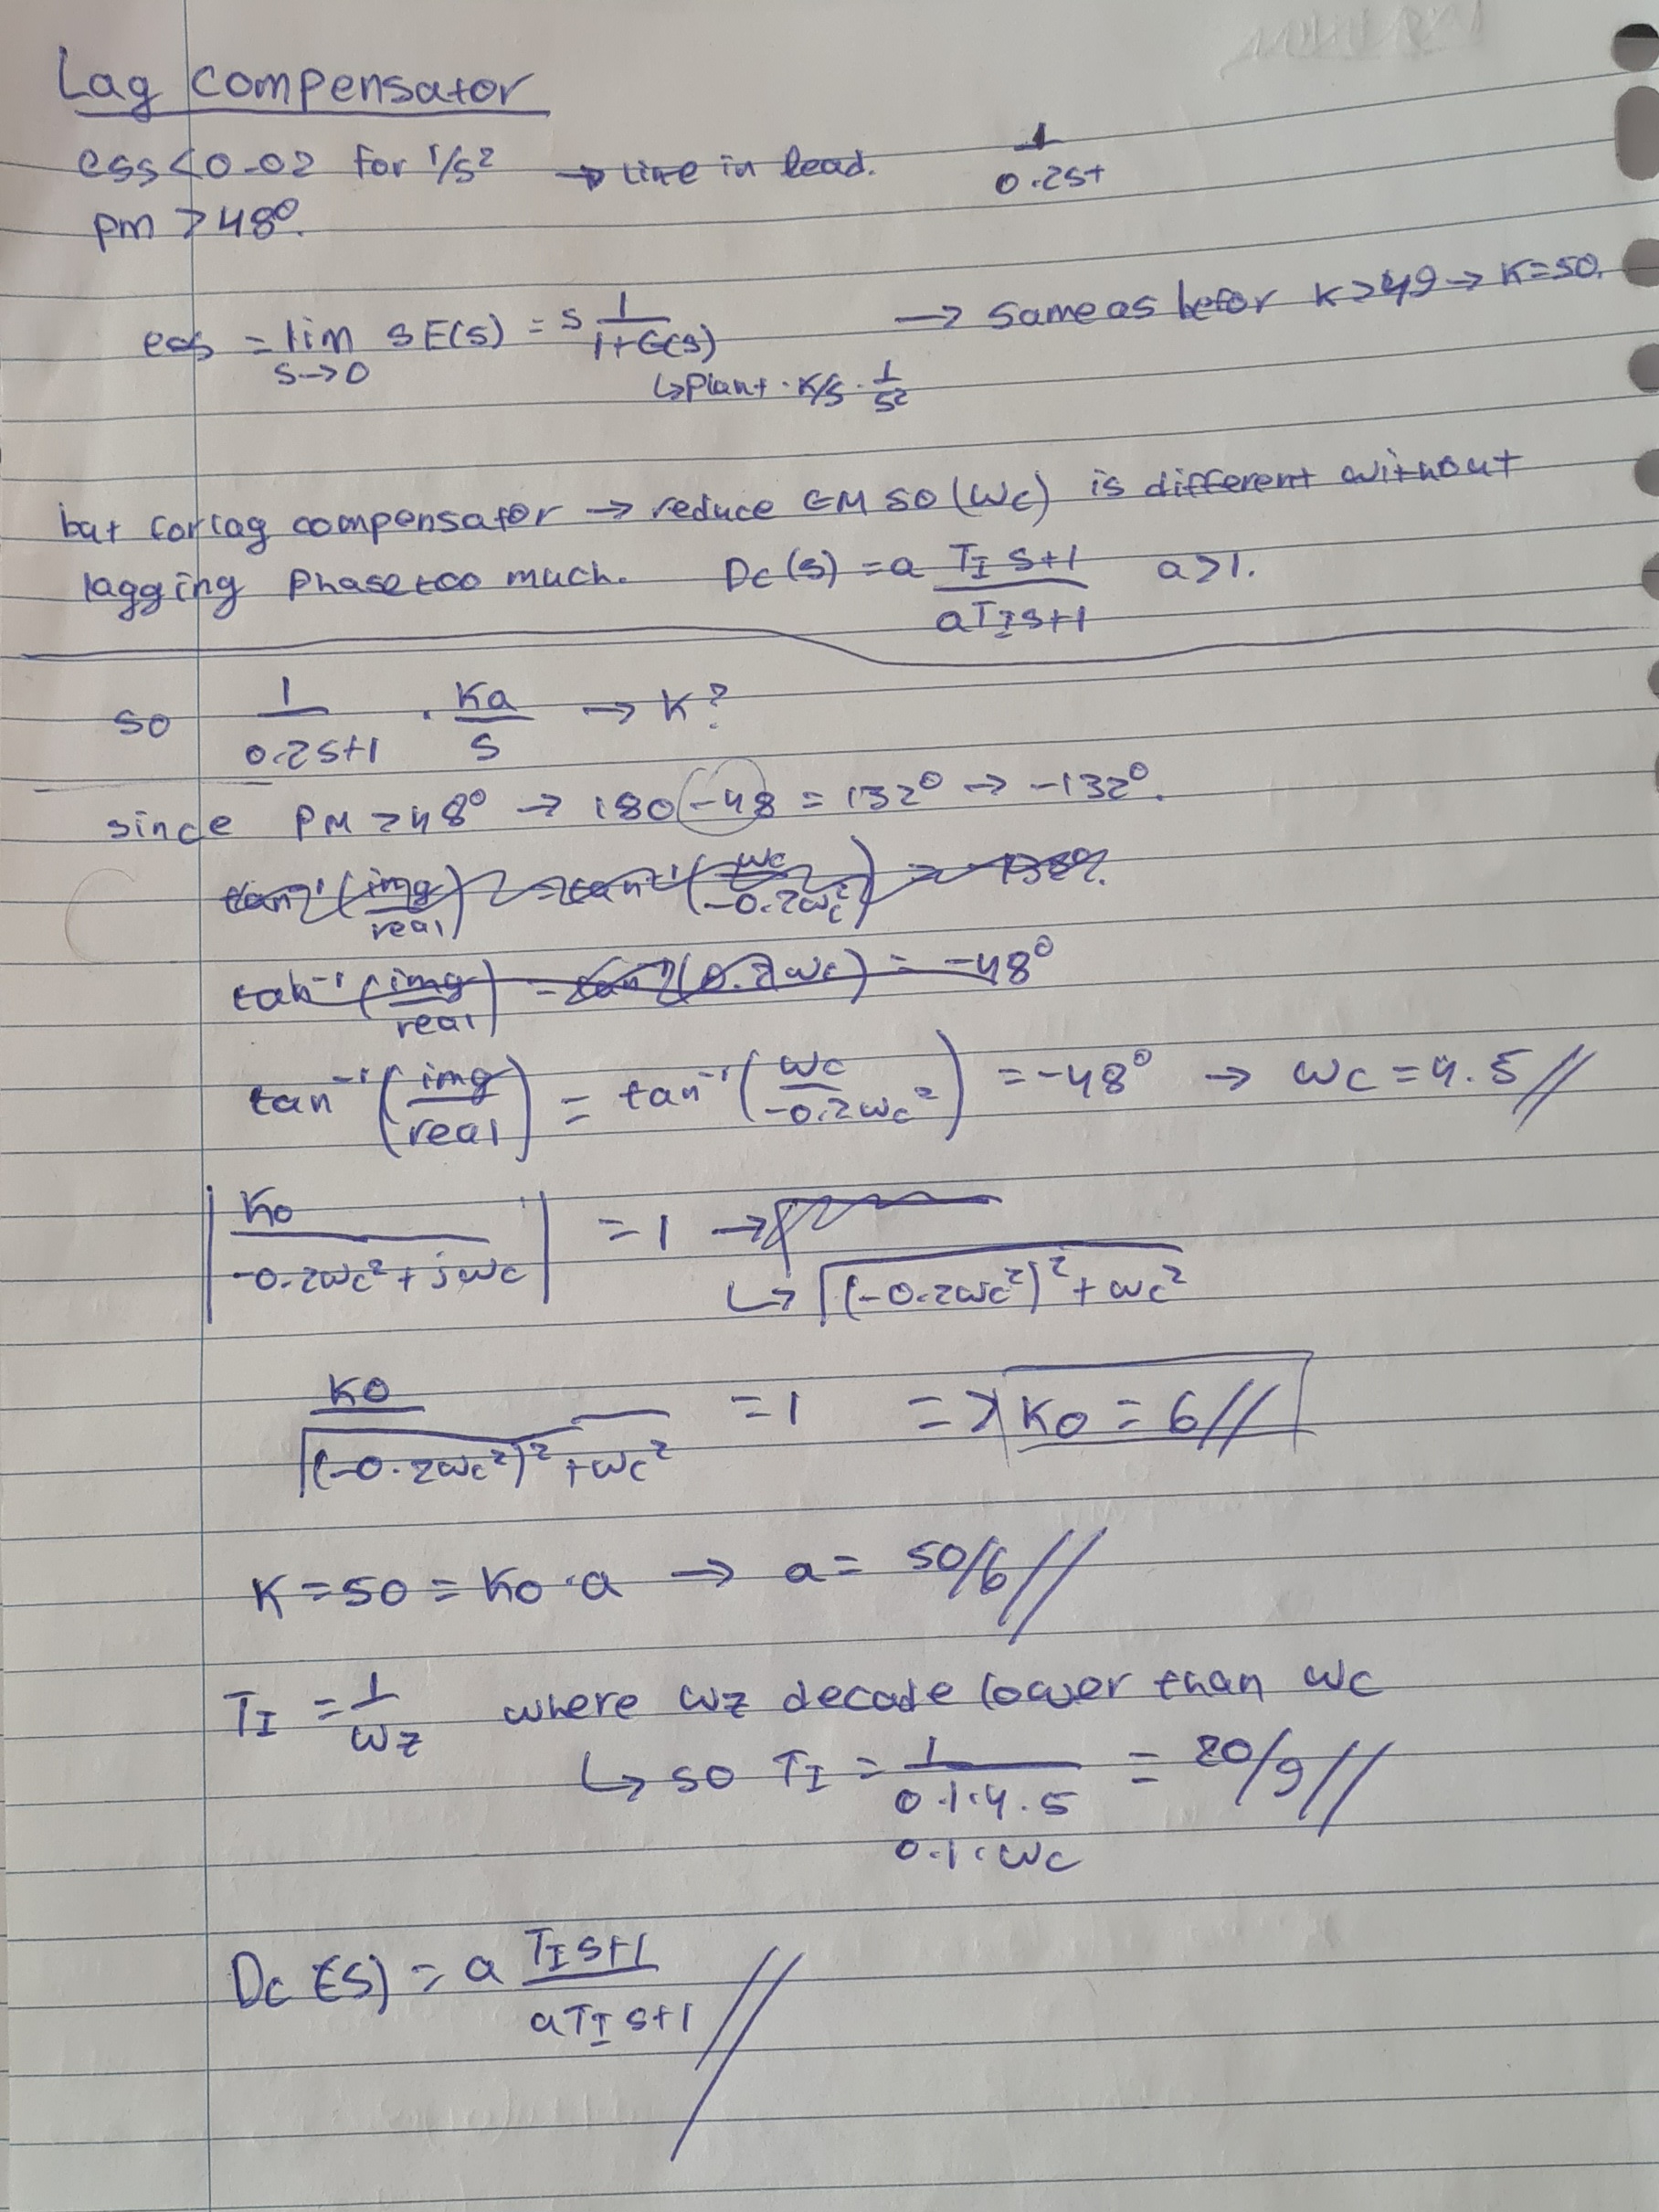 Lag compensator
ess<0.02 for 1/s² → Like in lead.
1
0.2s+
pm >48°.
ess = lim s→0 sE(s) = s 1/(1+G(s)) → same as befor K>49 → K=50.
↳ Plant · K/s · 1/s²
but for lag compensator → reduce GM so (ωc) is different without
lagging Phase too much. Dc(s) = a (TI s+1)/(aTIs+1) a>1.
so 1/(0.2s+1) · Ka/s → K?
since PM >48° → 180-48 = 132° → -132°.
tan⁻¹(img/real) = tan⁻¹(ωc/-0.2ωc²) = -132°.
tan⁻¹(img/real) = tan⁻¹(0.2ωc) = -48°
tan⁻¹(img/real) = tan⁻¹(ωc/-0.2ωc²) = -48° → ωc = 4.5//
|Ko/(-0.2ωc²+jωc)| = 1 →
↳ √((-0.2ωc²)²+ωc²)
Ko/√((-0.2ωc²)²+ωc²) = 1 => Ko = 6//
K = 50 = Ko·a → a = 50/6//
TI = 1/ωz where ωz decade lower than ωc
↳ so TI = 1/(0.1·4.5) = 20/9//
0.1·ωc
Dc(s) = a (TI s+1)/(aTI s+1)//